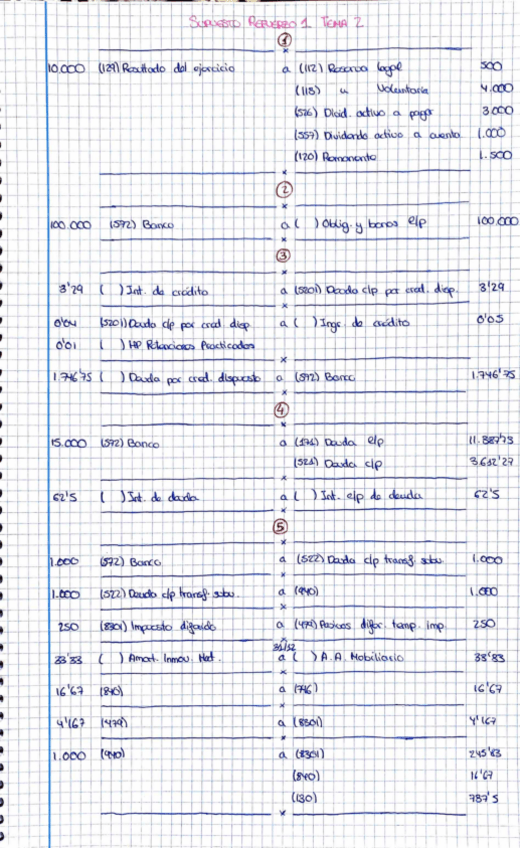 SUPUESTO REFUERZO 1 TEMA 2
1
10.000 (129) Resultado del ejercicio a (112) Reserva legal 500
(113) " Voluntaria 4.000
(526) Divid. activo a pagar 3.000
(557) Dividendo activo a cuenta 1.000
(120) Remanente 1.500
2
100.000 (572) Banco a ( ) Oblig. y bonos e/p 100.000
3
3'29 ( ) Int. de crédito a (5201) Deuda c/p por cred. disp. 3'29
0'04 (5201) Deuda c/p por cred. disp a ( ) Ingr. de crédito 0'05
0'01 ( ) HP Retenciones Practicadas
1.746'75 ( ) Deuda por cred. dispuesto a (572) Banco 1.746'75
4
15.000 (572) Banco a (171) Deuda e/p
(521) Deuda c/p
62'5 ( ) Int. de deuda a ( ) Int. e/p de deuda 62'5
5
1.000 (572) Banco a (522) Deuda c/p transf. subv. 1.000
1.000 (522) Deuda c/p transf. subv. a (940) 1.000
250 (8301) Impuesto diferido a (479) Pasivos difer. temp. imp. 250
31/12
33'33 ( ) Amort. Inmov. Mat. a ( ) A.A. Mobiliario 33'33
16'67 (840) a (746) 16'67
4'167 (479) a (8301) 4'167
1.000 (940) a (8301) 245'83
(840) 16'67
(130) 737'5